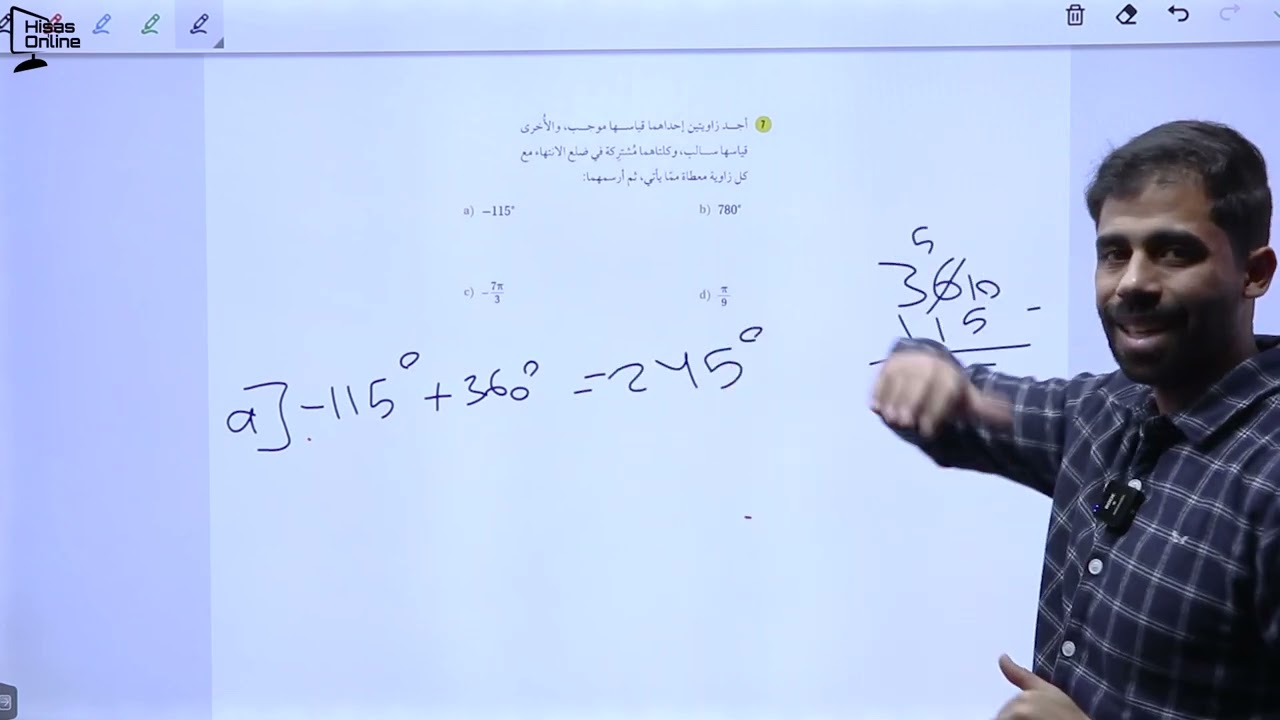 Hisas
Online
7 أجـد زاويتين إحداهما قياسـها موجـب، والأُخرى
قياسها سـالب، وكلتاهمـا مُشترِكة في ضلع الانتهاء مع
كل زاوية معطاة ممّا يأتي، ثم أرسمهما:
a) −115° b) 780°
c) −7π/3 d) π/9
5
3 6 10
115 −
a] −115° + 360° = 245°